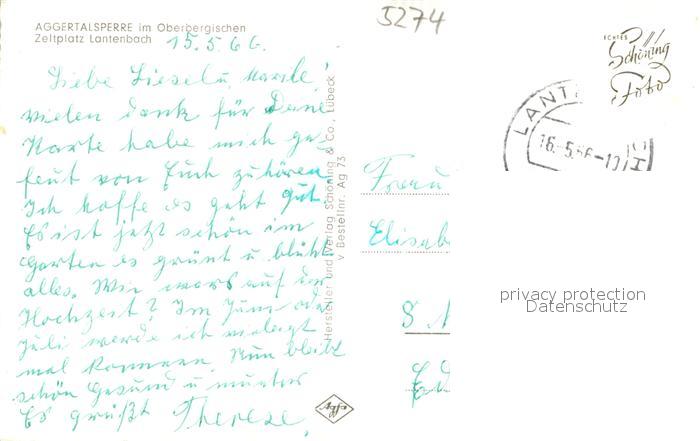 AGGERTALSPERRE im Oberbergischen
Zeltplatz Lantenbach
15.5.66.
5274
Liebe Liesel u. Marile!
vielen dank für Deine
Karte habe mich ge-
freut von Euch zu hören
Ich hoffe es geht gut.
Es ist jetzt schön im
Garten es grünt u. blüht
alles. Wie wars auf der
Hochzeit? Im Juni oder
Juli werde ich vieleicht
mal kommen. Nun bleibt
schön Gesund u. munter
Es grüßt Therese.
Hersteller und Verlag Schöning & Co., Lübeck
v Bestellnr. Ag 73
Agfa
ECHTES
Schöning
Foto
LANT
16.-5.66-10
Frau
Elisab
8
privacy protection
Datenschutz